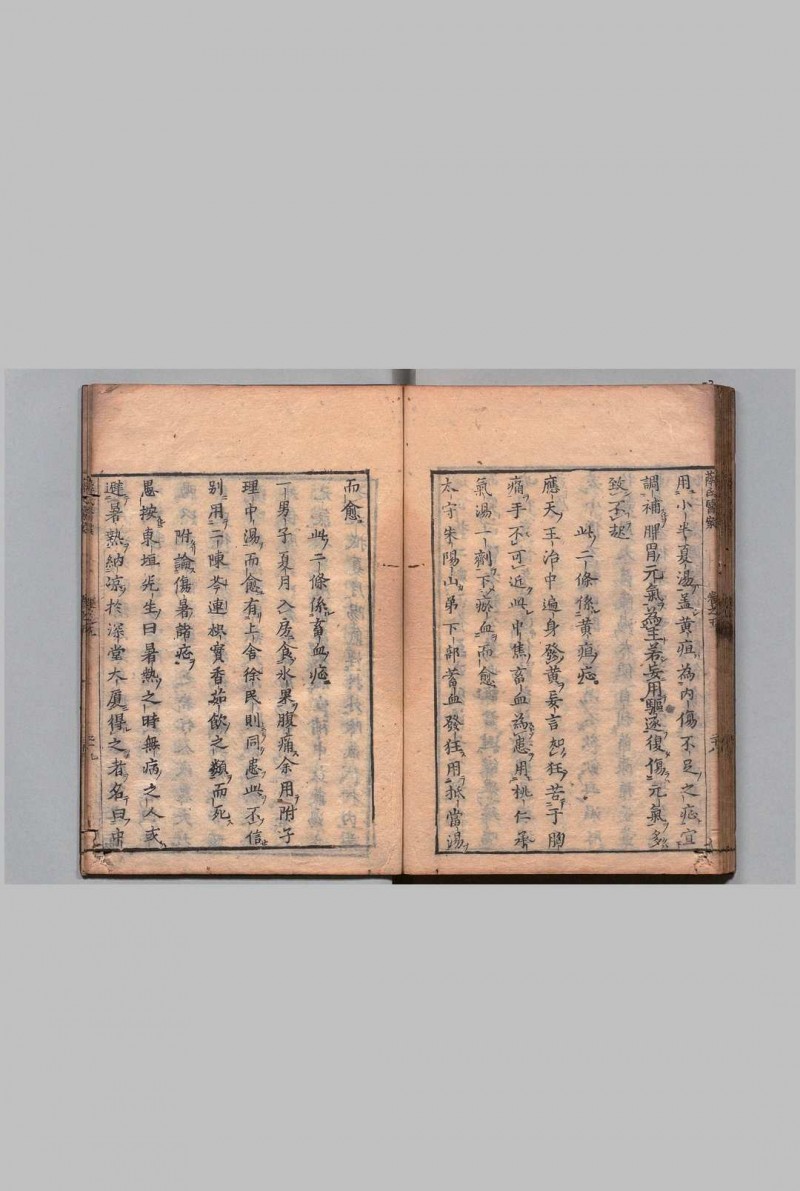 用小半夏湯盖黄疸為内傷不足之症宜
調補脾胃元氣為主若妄用驅逐復傷元氣多
致不起
此二條係黄疸症
應天王治中遍身發黄妄言如狂苦于胸
痛手不可近此中焦畜血為患用桃仁承
氣湯一劑下瘀血而愈
太守朱陽山弟下部蓄血發狂用抵當湯
而愈
此二條係畜血症
一男子夏月入房食氷果腹痛余用附子
理中湯而愈有上舍徐民則同患此不信
别用二陳芩連枳實香茹飲之類而死
附論傷暑諸症
愚按東垣先生曰暑熱之時無病之人或
避暑熱納凉於深堂大厦得之者名曰中